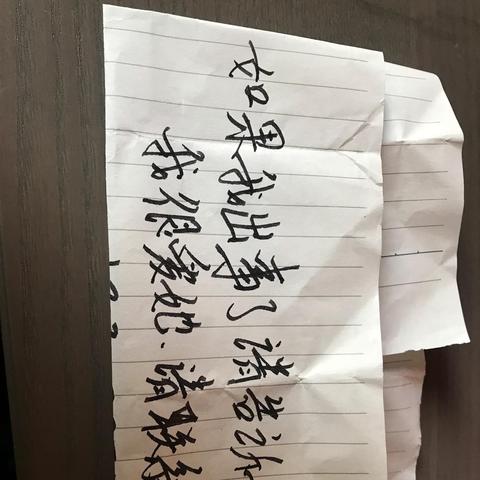 如果我出事了请告诉
我很爱她.请联系